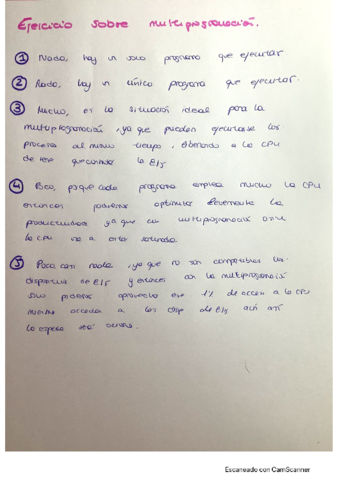 Ejercicio sobre multiprogramación.
① Nada, hay un solo programa que ejecutar.
② Nada, hay un único programa que ejecutar.
③ Mucho, es la situación ideal para la
multiprogramación, ya que pueden ejecutarse los
procesos al mismo tiempo, liberando a la CPU
de tener que controlar la E/S
④ Poco, porque cada programa emplea mucho la CPU
entonces podremos optimizar levemente la
productividad ya que con multiprogramación
la CPU va a estar saturada.
⑤ Poco casi nada, ya que no son compartibles los
dispositivos de E/S y entonces con la multiprogramación
solo podremos aprovechar ese 1% de acceso a la CPU
mientras acceden a los disp de E/S aún así
la espera será
Escaneado con CamScanner